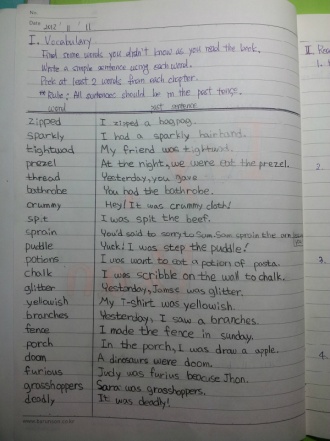 No.
Date 2012. 11. 11
I. Vocabulary
Find some words you didn't know as you read the book.
Write a simple sentence using each word.
Pick at least 2 words from each chapter.
** Rule: All sentences should be in the past tense.
word past sentence
zipped I zipped a
sparkly I had a sparkly hairband.
tightwad My friend was tightwad.
prezel At the night, we were eat the prezel.
thread Yesterday, you gave
bathrobe You had the bathrobe.
crummy Hey! It was crummy cloth!
spit I was spit the beef.
sprain You'd said sorry to Sam. Sam sprain the
puddle Yuck! I was step the puddle!
potions I was want to eat a potion of pasta.
chalk I was scribble on the wall to chalk.
glitter Yesterday, James was glitter.
yellowish My t-shirt was yellowish.
branches Yesterday, I saw a branches.
fence I made the fence in sunday.
porch In the porch, I was draw a apple.
doom A dinosaurs were doom.
furious Judy was furius because Jhon.
grasshoppers Sara was grasshoppers.
deadly It was deadly!
II. Rea
1.
2.
3.
4.